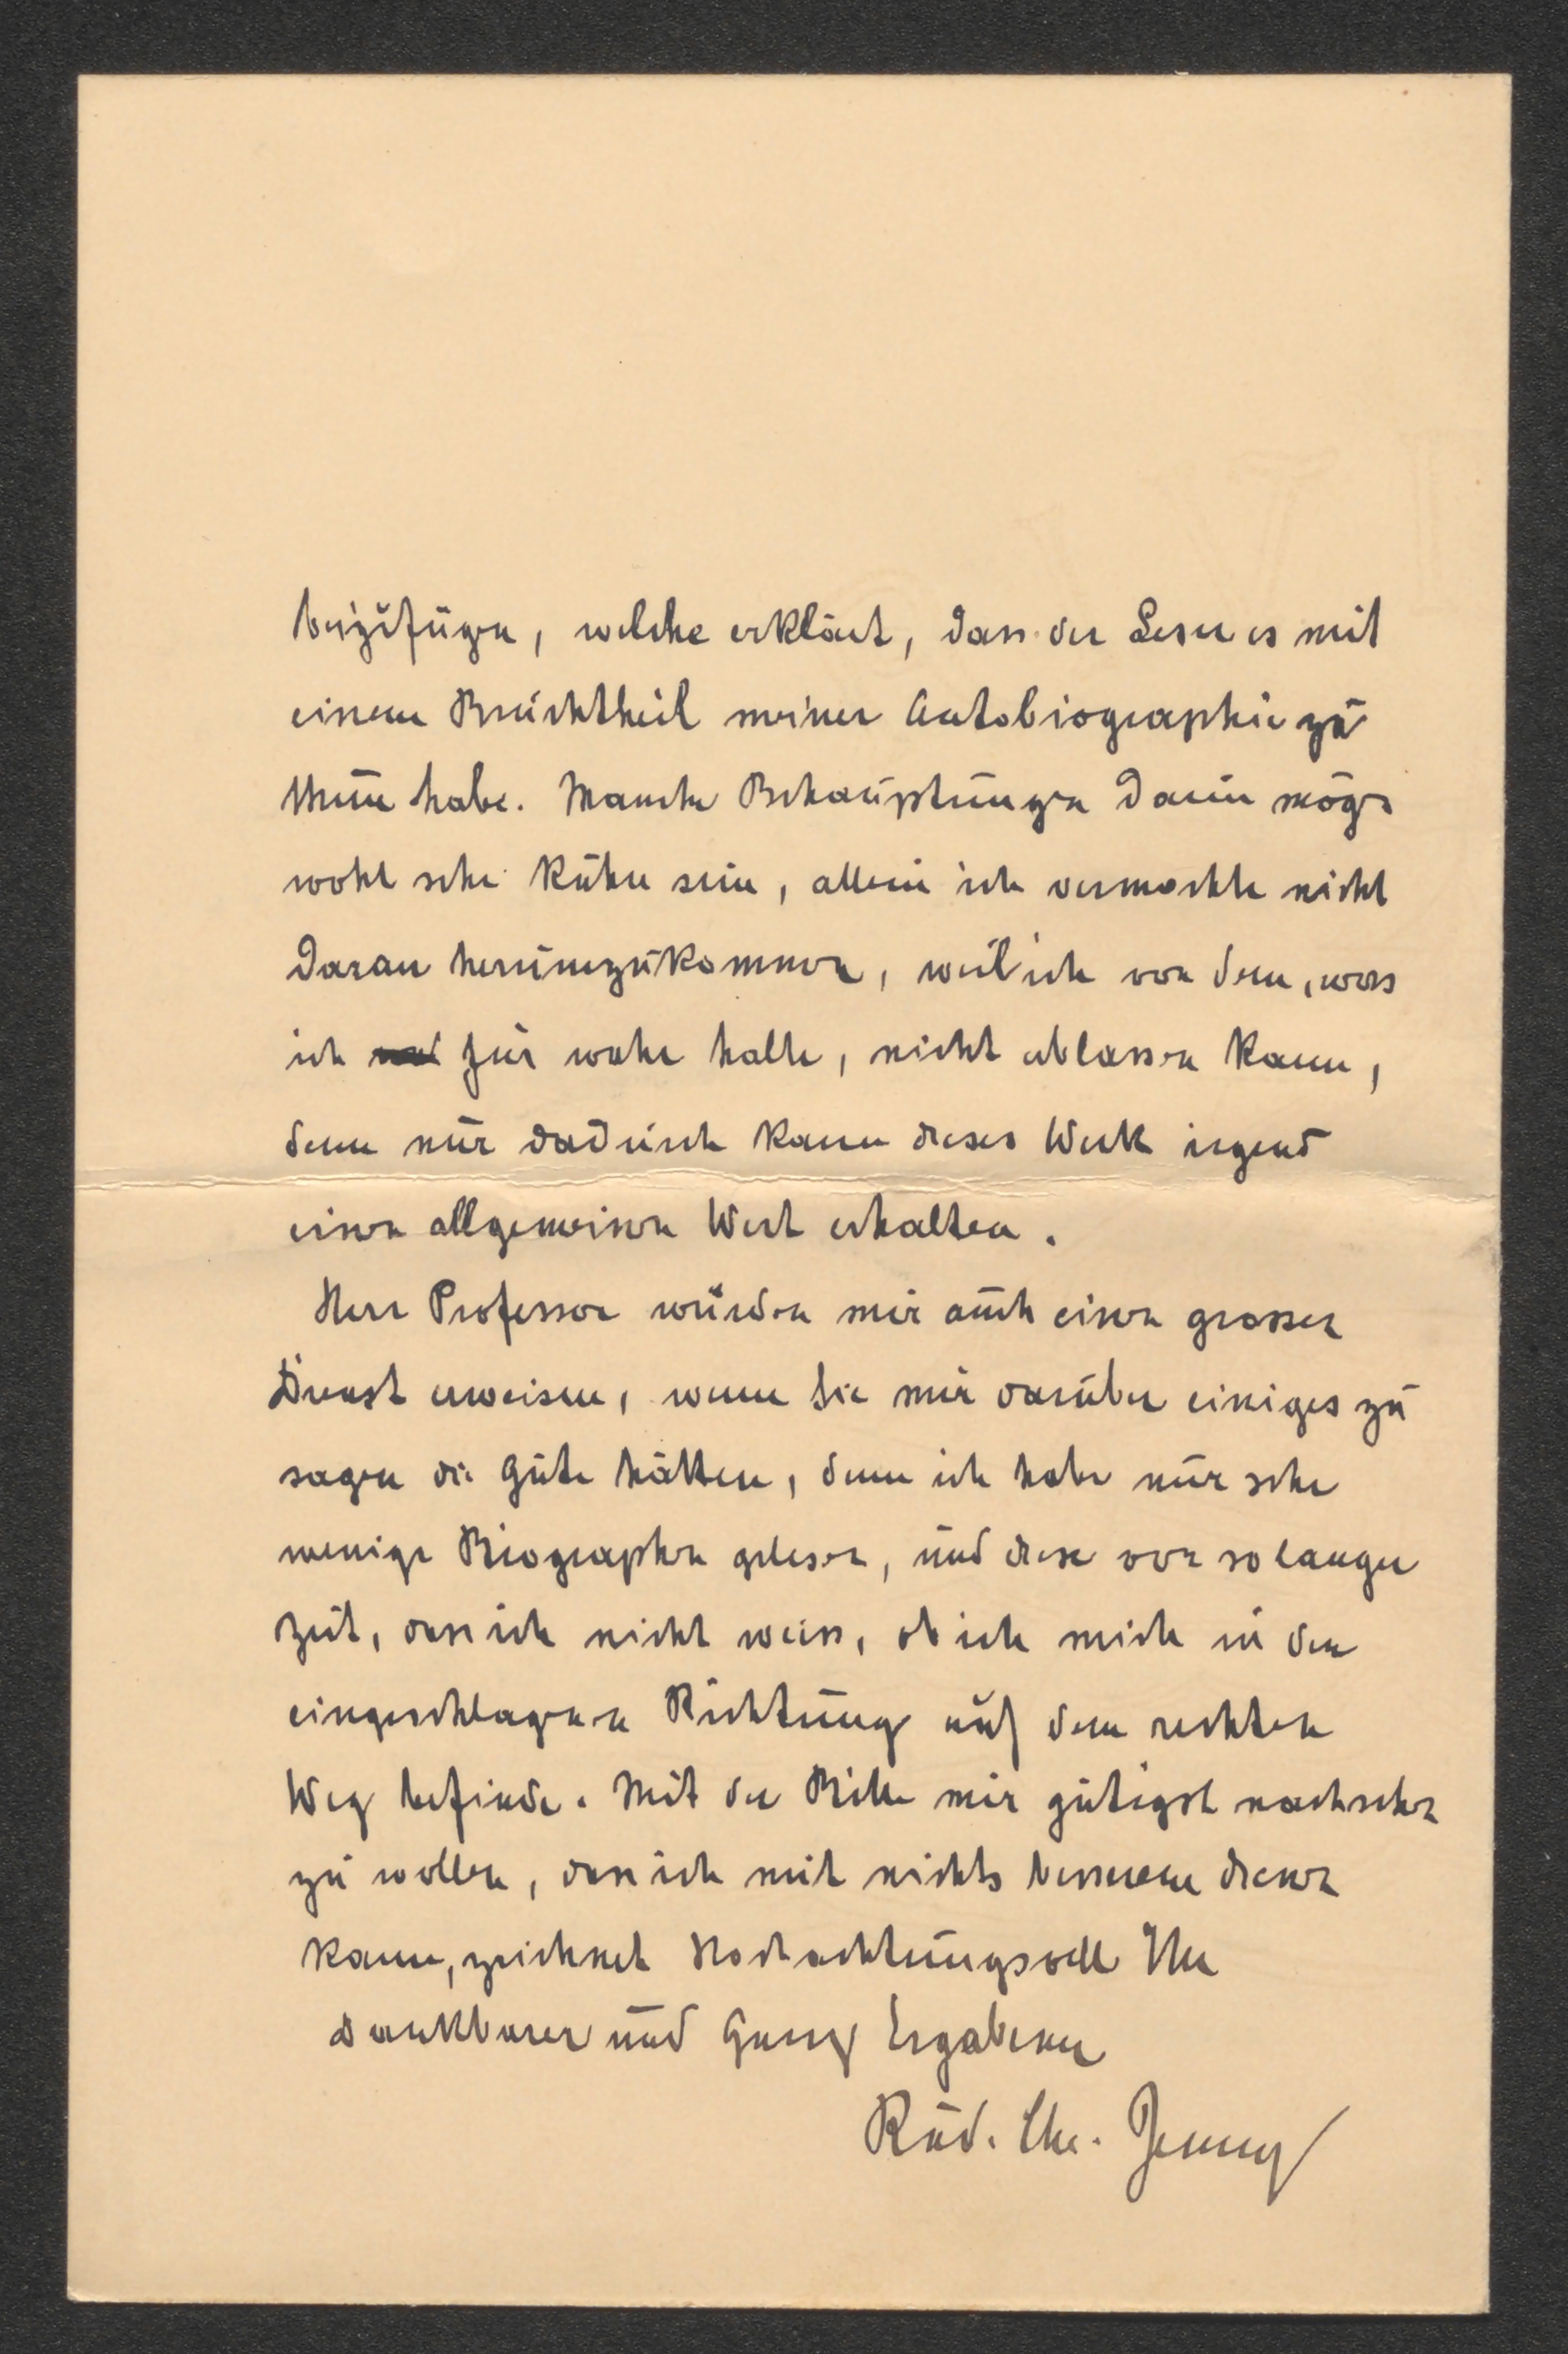 beizufügen, welche erklärt, dass der Leser es mit
einem Bruchtheil meiner Autobiographie zu
thun habe. Manche Behauptungen darin mögen
wohl sehr kühn sein, allein ich vermochte nicht
daran herumzukommen, weil ich von dem, was
ich für wahr halte, nicht ablassen kann,
denn nur dadurch kann dieses Werk irgend
einen allgemeinen Wert erhalten.
Herr Professor würden mir auch einen grossen
Dienst erweisen, wenn Sie mir darüber einiges zu
sagen die Güte hätten, denn ich habe nur sehr
wenige Biographen gelesen, und diese vor so langer
Zeit, dass ich nicht weiss, ob ich mich in der
eingeschlagenen Richtung auf dem rechten
Weg befinde. Mit der Bitte mir gütigst nachsehen
zu wollen, dass ich mit nichts besserem dienen
kann, zeichnet Hochachtungsvoll Ihr
dankbarer und Ganz Ergebener
Rud. Chr. Jenny